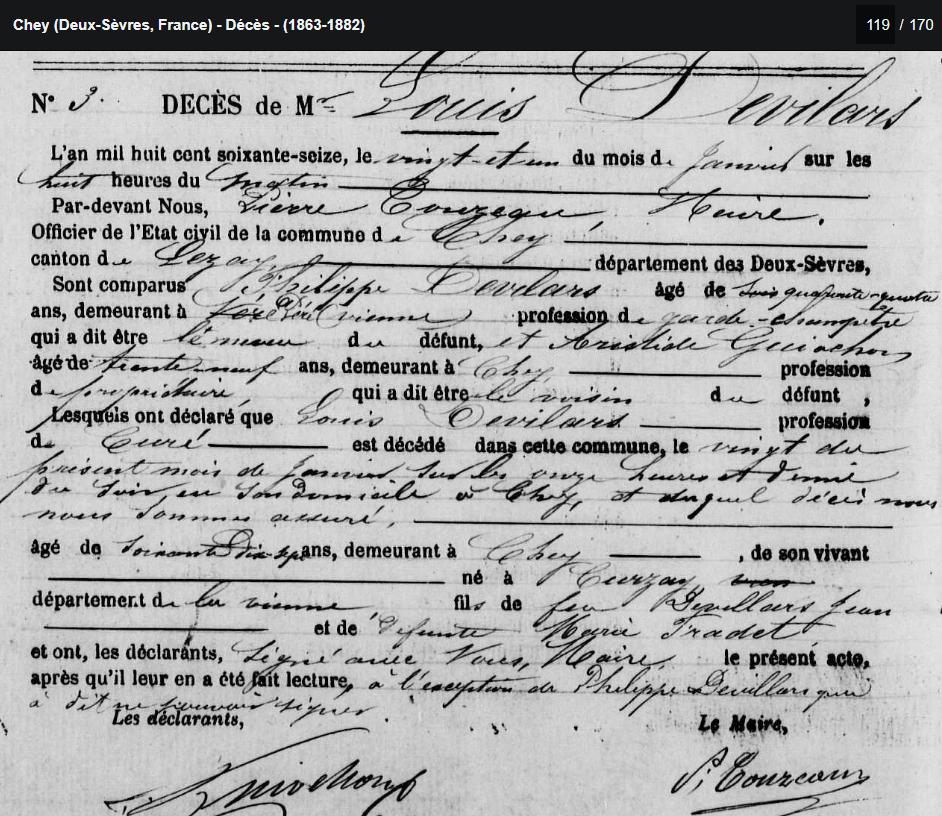 Chey (Deux-Sèvres, France) - Décès - (1863-1882) 119 / 170
N° 3. DECÈS de Mr Louis Devilars
L'an mil huit cent soixante-seize, le vingt et un du mois de Janvier sur les
huit heures du matin
Par-devant Nous, Pierre Couzeau, Maire,
Officier de l'Etat civil de la commune de Chey
canton de Lezay, département des Deux-Sèvres,
Sont comparus Philippe Devilars âgé de soixante-quatre
ans, demeurant à (vienne) profession de garde-champêtre
qui a dit être le neveu du défunt, et Aristide Guiochon
âgé de trente-neuf ans, demeurant à Chey profession
de propriétaire, qui a dit être le voisin du défunt,
Lesquels ont déclaré que Louis Devilars profession
de Curé est décédé dans cette commune, le vingt du
présent mois de Janvier sur les onze heures et demie
du soir, en son domicile à Chey, et duquel décès nous
nous sommes assuré,
âgé de soixante dix sept ans, demeurant à Chey, de son vivant
né à Curzay
département de la vienne fils de feu Devillars Jean
et de défunte Marie Tradet
et ont, les déclarants, signé avec Nous, Maire, le présent acte,
après qu'il leur en a été fait lecture, à l'exception de Philippe Devillars qui
à dit ne pouvoir signer.
Les déclarants, Le Maire,
Guiochon P. Couzeau